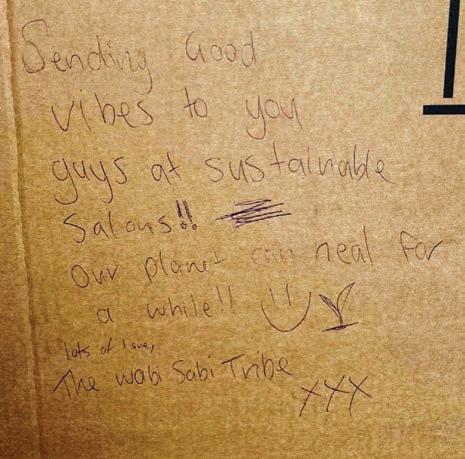 Sending Good
vibes to you
guys at sustainable
Salons!!
Our planet can heal for
a while!!
lots of love,
The wabi Sabi Tribe
xxx